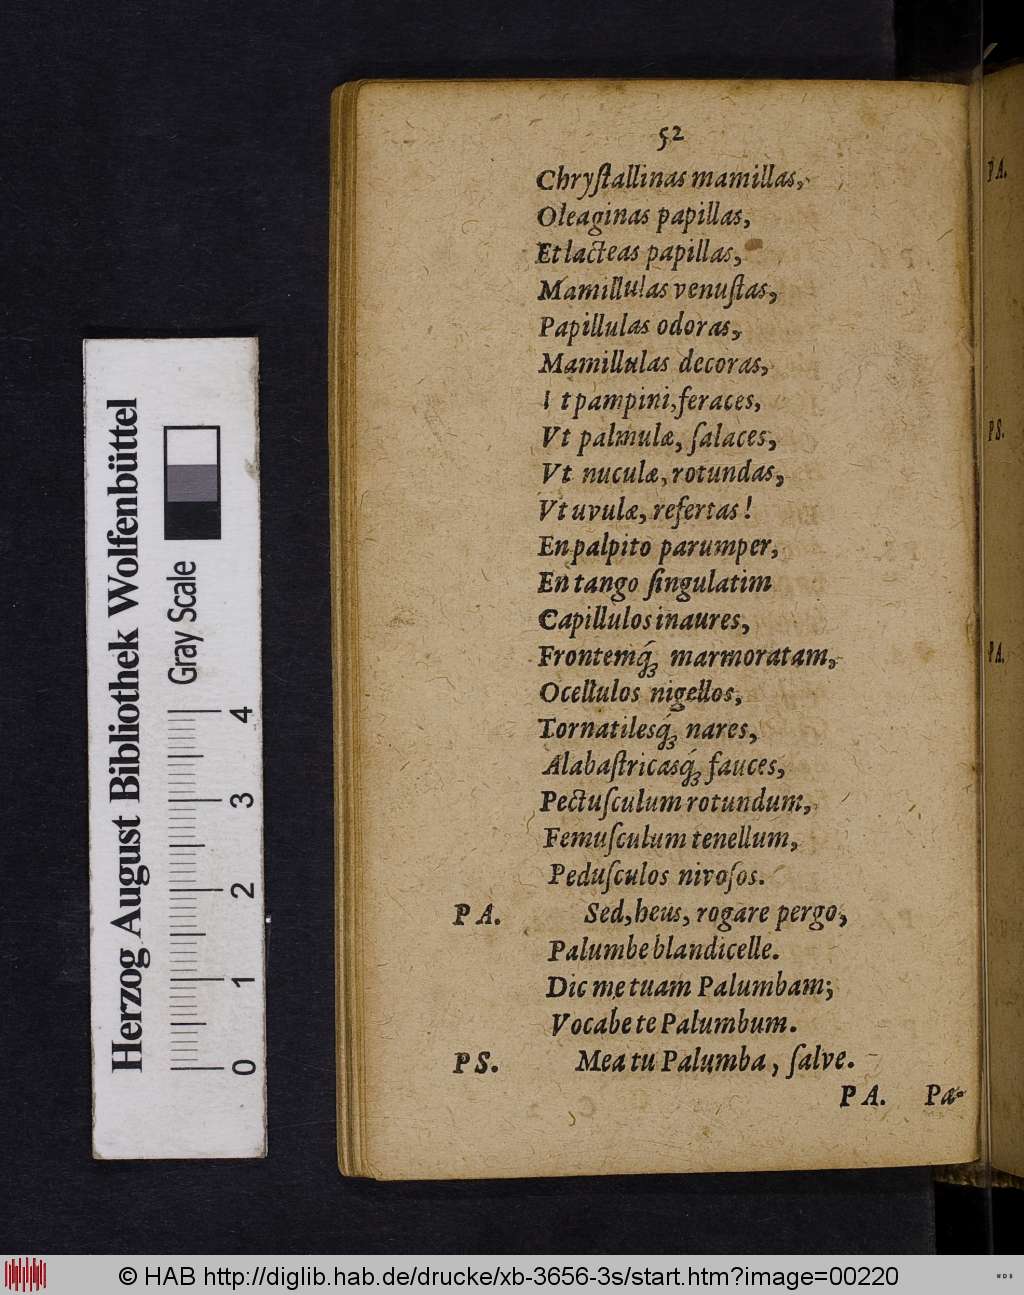 52
Chryſtallinas mamillas,
Oleaginas papillas,
Et lacteas papillas,
Mamillulas venuſtas,
Papillulas odoras,
Mamillulas decoras,
t pampini, feraces,
Vt palmulæ, ſalaces,
Vt nuculæ, rotundas,
Vt uvulæ, refertas!
En palpito parumper,
En tango ſingulatim
Capillulos inaures,
Frontemq́ꝫ marmoratam,
Ocellulos nigellos,
Tornatilesq́ꝫ nares,
Alabaſtricasq́ꝫ fauces,
Pectuſculum rotundum,
Femuſculum tenellum,
Peduſculos nivoſos.
PA. Sed, heus, rogare pergo,
Palumbe blandicelle.
Dic me tuam Palumbam;
Vocabe te Palumbum.
PS. Mea tu Palumba, ſalve.
PA. Pa-
PA.
PS.
PA.
Herzog August Bibliothek Wolfenbüttel
Gray Scale
0 1 2 3 4
© HAB http://diglib.hab.de/drucke/xb-3656-3s/start.htm?image=00220